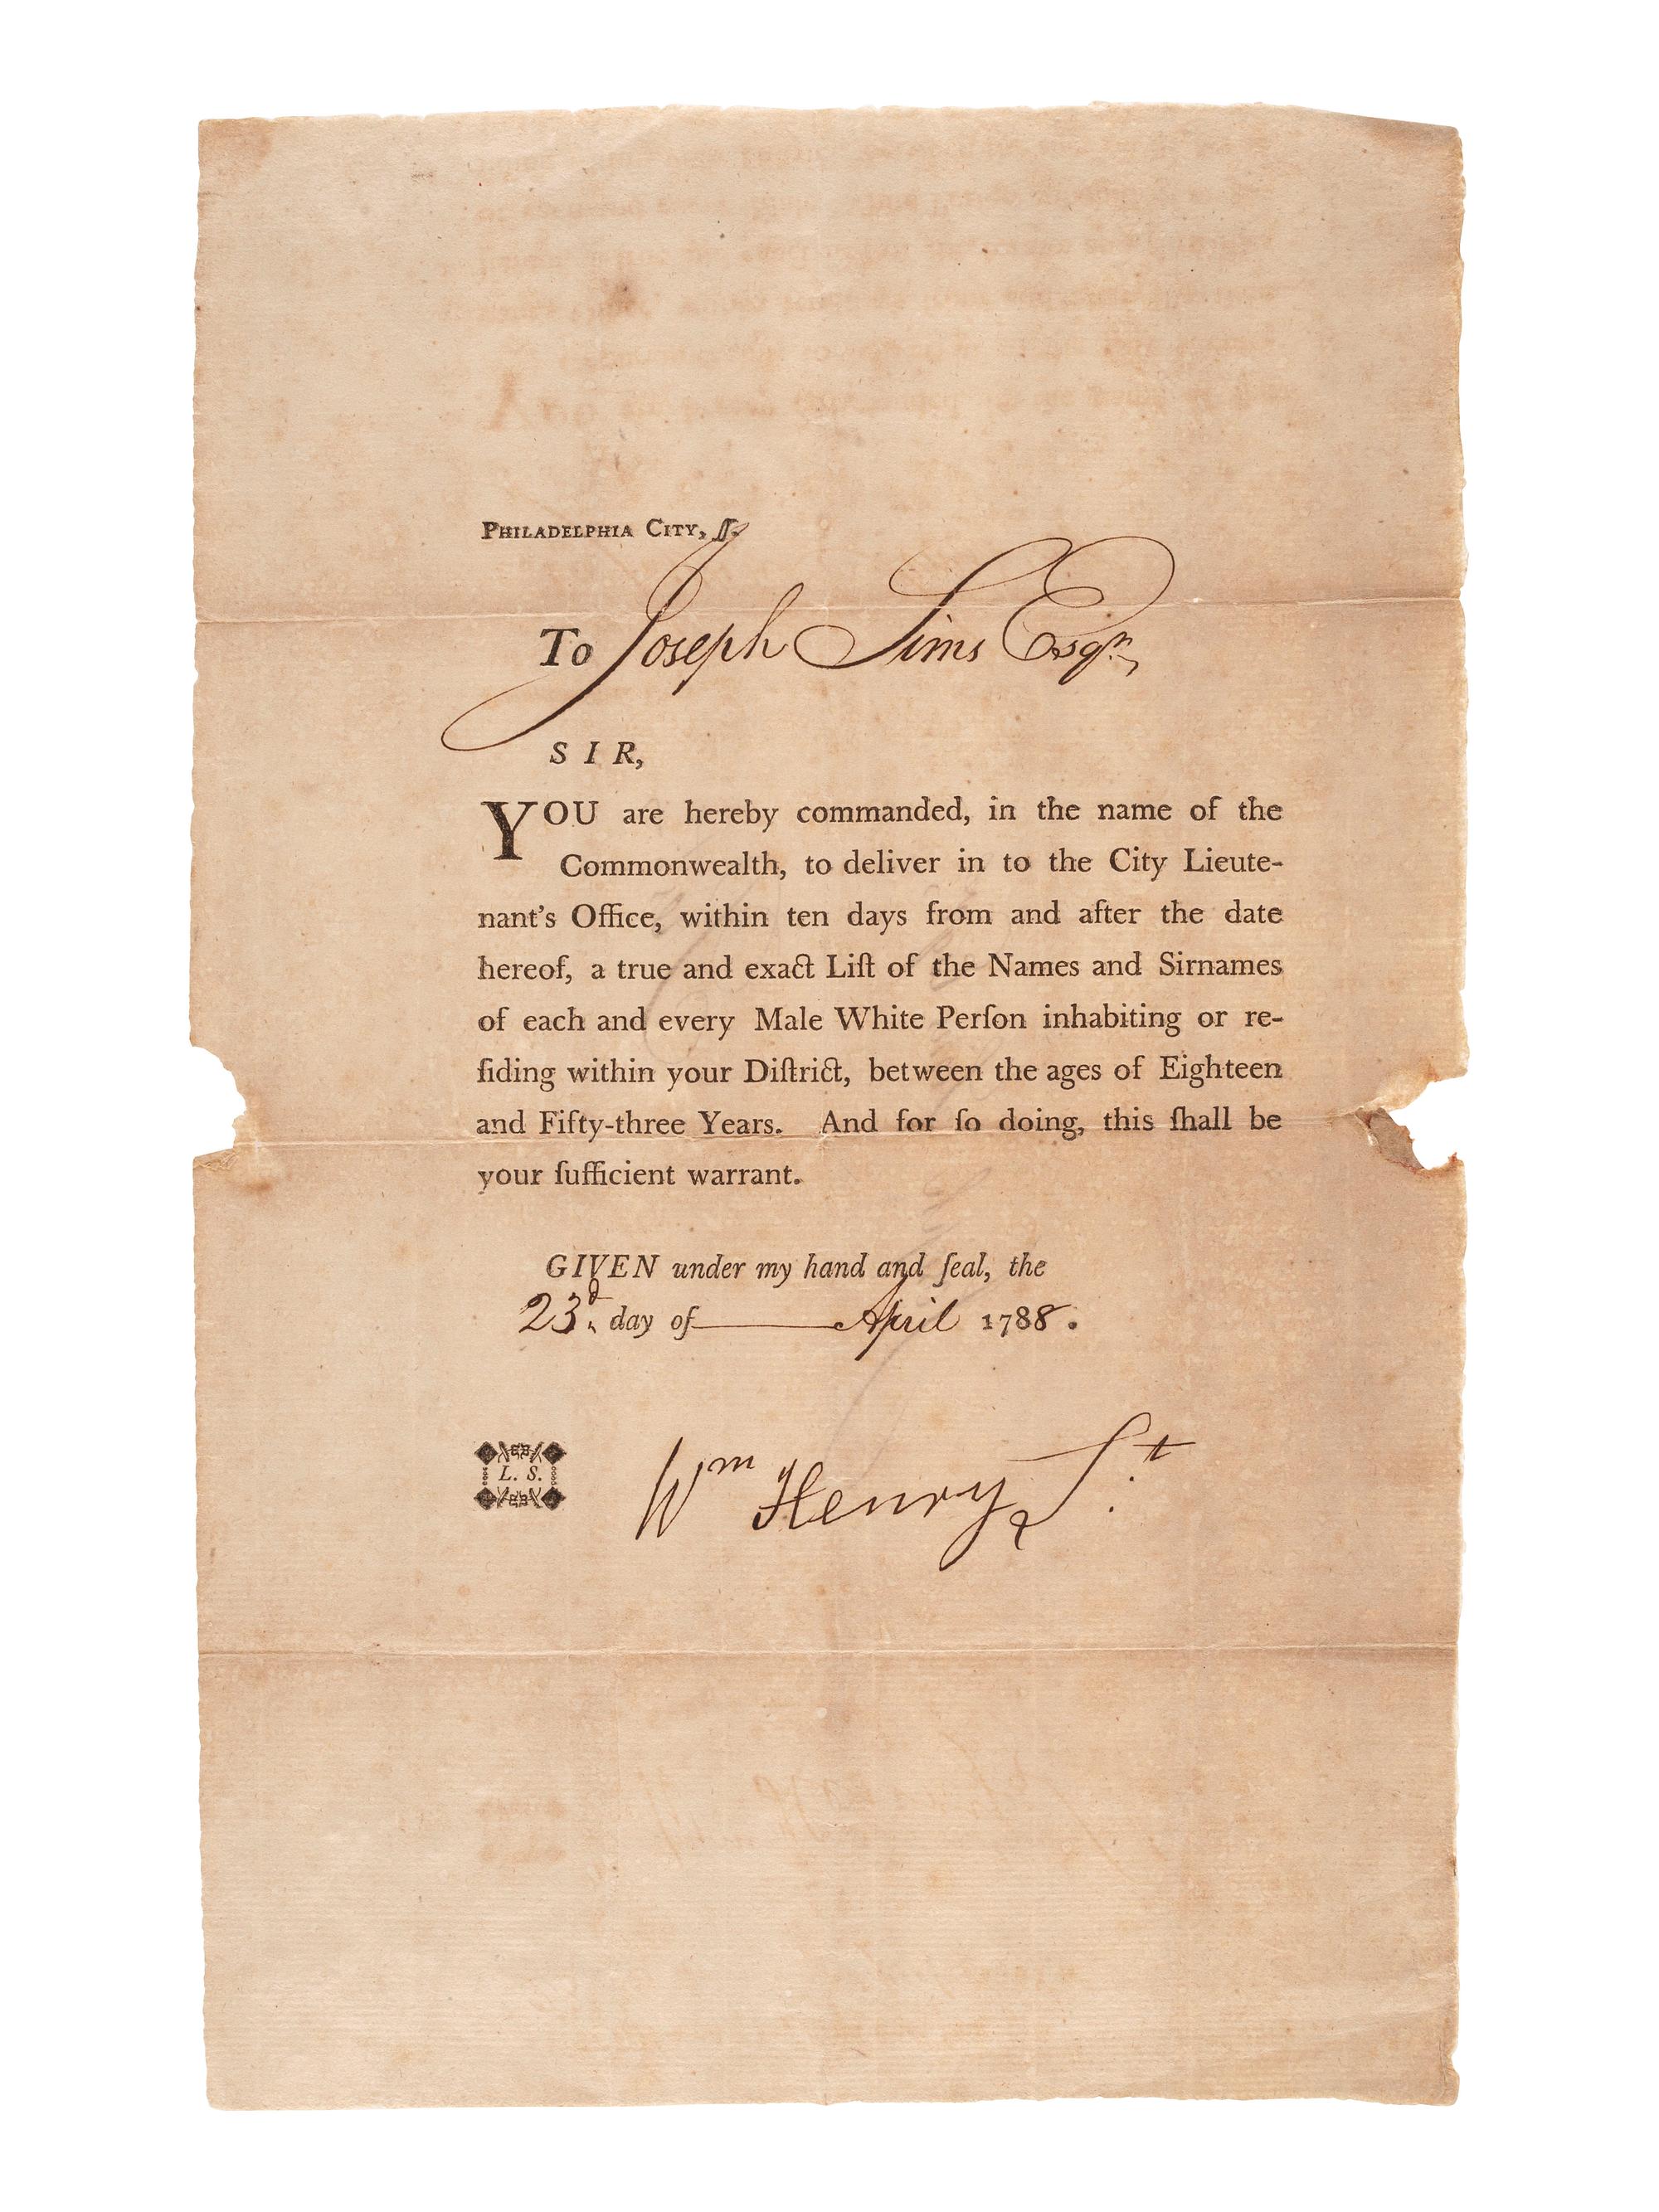 PHILADELPHIA CITY, ſſ.
To Joseph Sims Esqr.,
SIR,
YOU are hereby commanded, in the name of the
Commonwealth, to deliver in to the City Lieute-
nant's Office, within ten days from and after the date
hereof, a true and exact Liſt of the Names and Sirnames
of each and every Male White Perſon inhabiting or re-
ſiding within your Diſtrict, between the ages of Eighteen
and Fifty-three Years. And for ſo doing, this ſhall be
your ſufficient warrant.
GIVEN under my hand and ſeal, the
23d. day of April 1788.
L. S.
Wm Henry